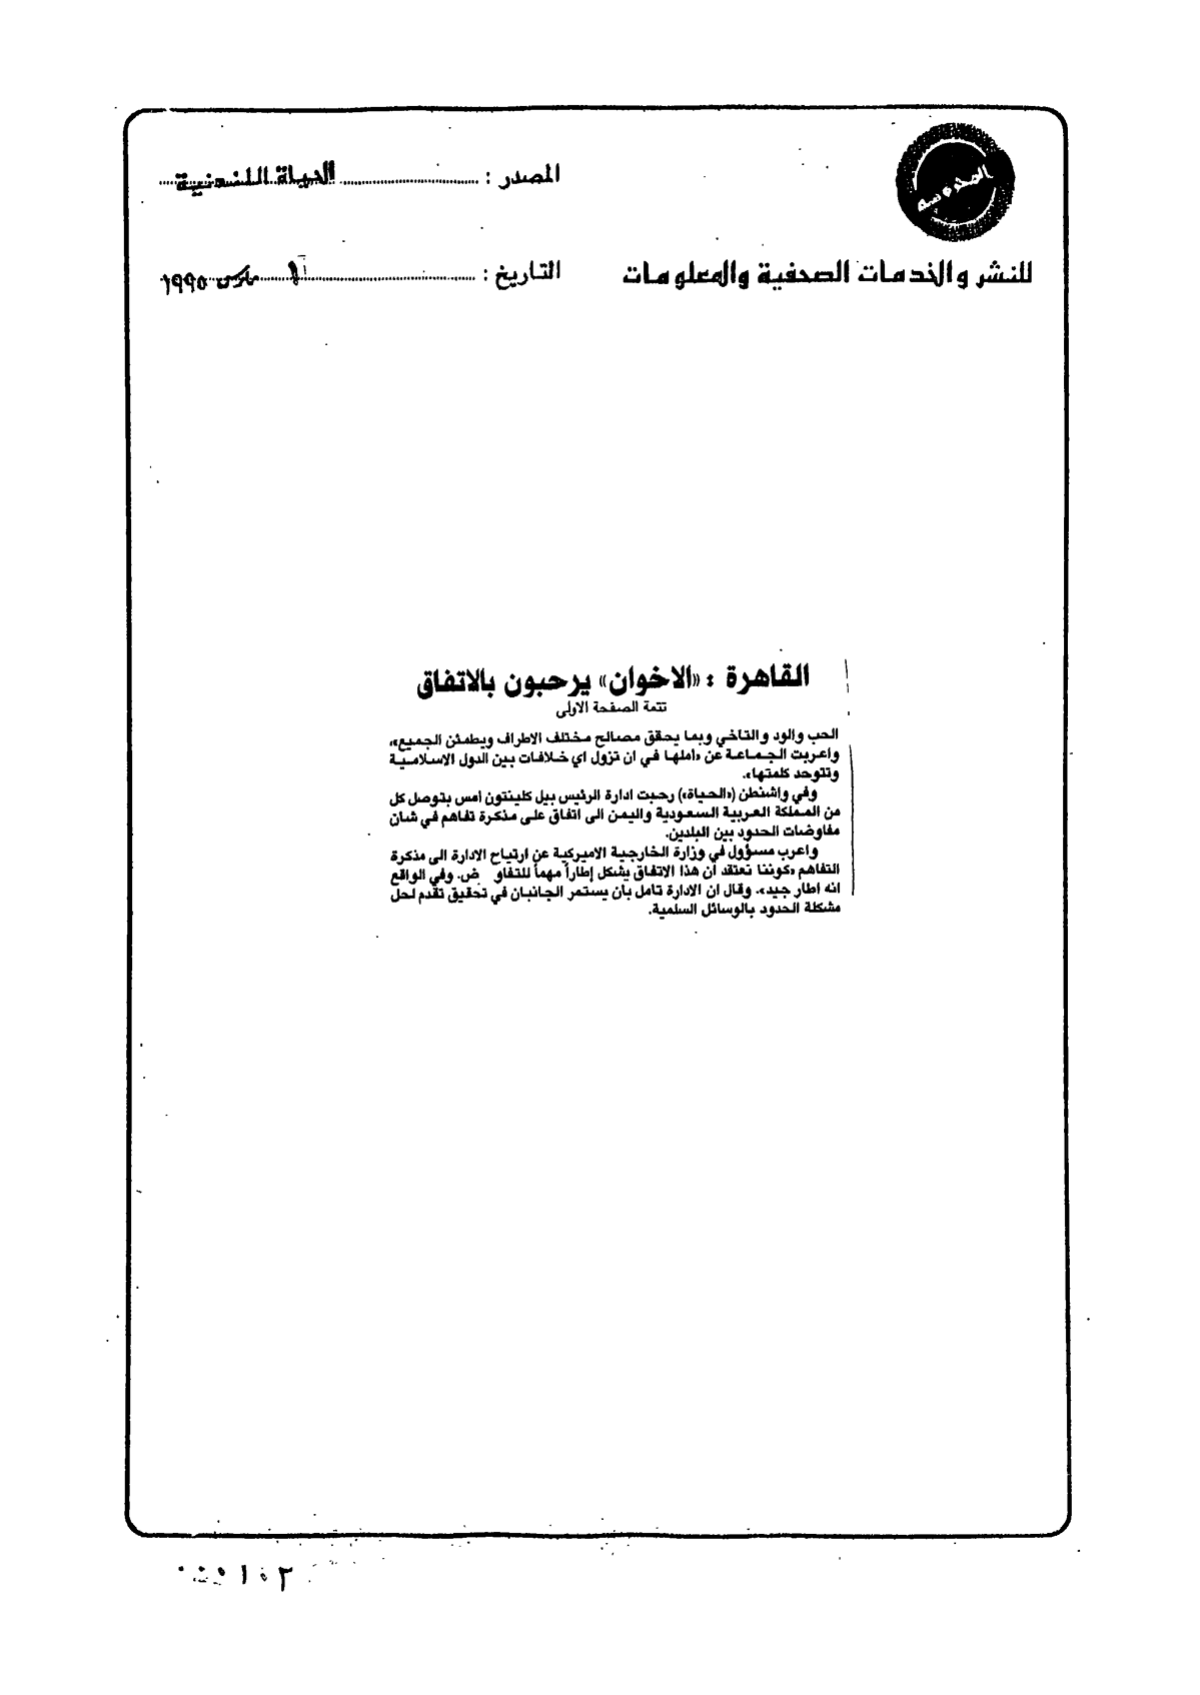 المحروسة
المصدر : الحياة اللندنية
للنشر والخدمات الصحفية والمعلومات
التاريخ : ١ مارس ١٩٩٥
القاهرة : «الاخوان» يرحبون بالاتفاق
تتمة الصفحة الاولى
الحب والود والتاخي وبما يحقق مصالح مختلف الاطراف ويطمئن الجميع»،
واعربت الجماعة عن «املها في ان تزول اي خلافات بين الدول الاسلامية
وتتوحد كلمتها».
وفي واشنطن («الحياة») رحبت ادارة الرئيس بيل كلينتون امس بتوصل كل
من المملكة العربية السعودية واليمن الى اتفاق على مذكرة تفاهم في شان
مفاوضات الحدود بين البلدين.
واعرب مسؤول في وزارة الخارجية الاميركية عن ارتياح الادارة الى مذكرة
التفاهم «كوننا نعتقد ان هذا الاتفاق يشكل إطاراً مهماً للتفاو ض. وفي الواقع
انه اطار جيد». وقال ان الادارة تامل بان يستمر الجانبان في تحقيق تقدم لحل
مشكلة الحدود بالوسائل السلمية.